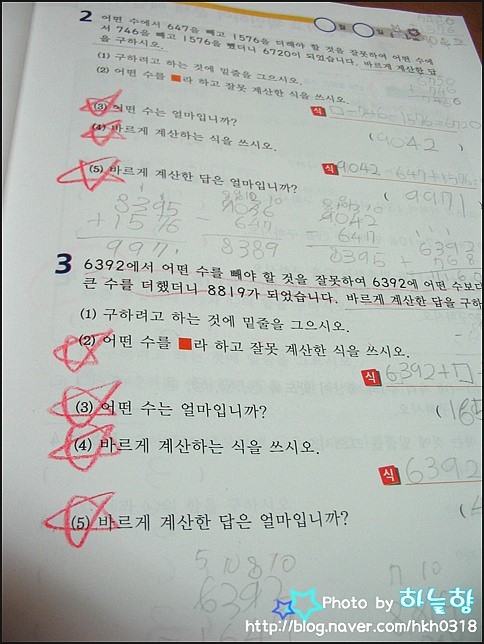 2 어떤 수에서 647을 빼고 1576을 더해야 할 것을 잘못하여 어떤 수에
서 746을 빼고 1576을 했더니 6720이 되었습니다. 바르게 계산한 답
을 구하시오.
(1) 구하려고 하는 것에 밑줄을 그으시오.
(2) 어떤 수를 ■라 하고 잘못 계산한 식을 쓰시오.
식 □-746-1576=6720
(3) 어떤 수는 얼마입니까?
(9042)
(4) 바르게 계산하는 식을 쓰시오.
식 9042-647+1576
(5) 바르게 계산한 답은 얼마입니까?
(9971)
8395
+1576
9971
647
8389
9042
647
8395
6392
3 6392에서 어떤 수를 빼야 할 것을 잘못하여 6392에 어떤 수보다
큰 수를 더했더니 8819가 되었습니다. 바르게 계산한 답을 구하
(1) 구하려고 하는 것에 밑줄을 그으시오.
(2) 어떤 수를 ■라 하고 잘못 계산한 식을 쓰시오.
식 6392+□-
(3) 어떤 수는 얼마입니까?
(4) 바르게 계산하는 식을 쓰시오.
식 6392
(5) 바르게 계산한 답은 얼마입니까?
5 10 8 10
6392
Photo by 하늘향
http://blog.naver.com/hkh0318